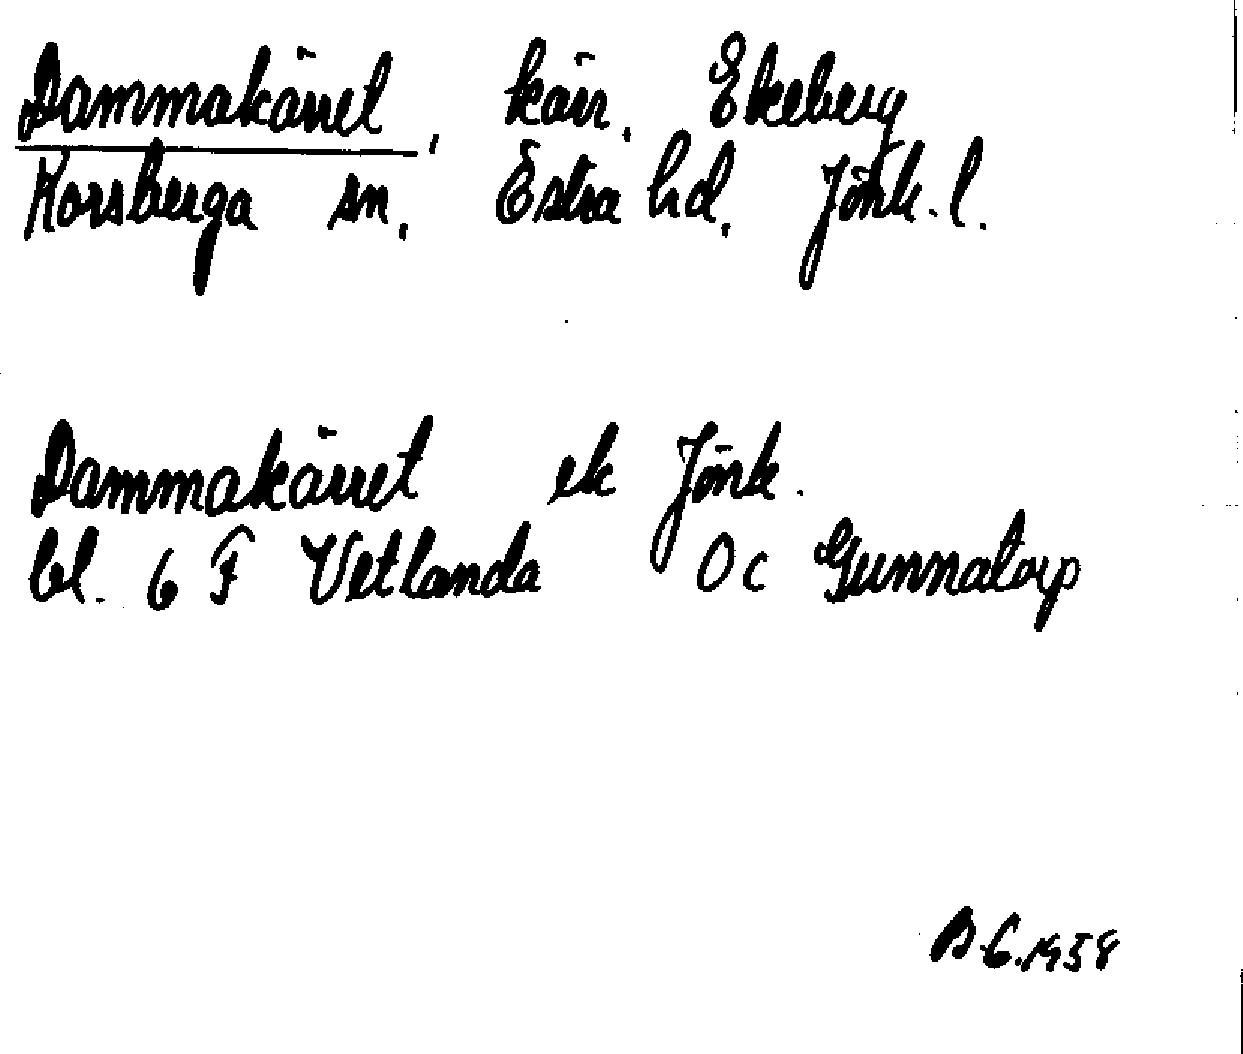 Dammakärret, kärr. Ekeberg
Korsberga sn. Östra hd. Jönk. l.
Dammakärret ek Jönk.
bl. 6 F Vetlanda Oc Gunnatorp
B.G. 1958